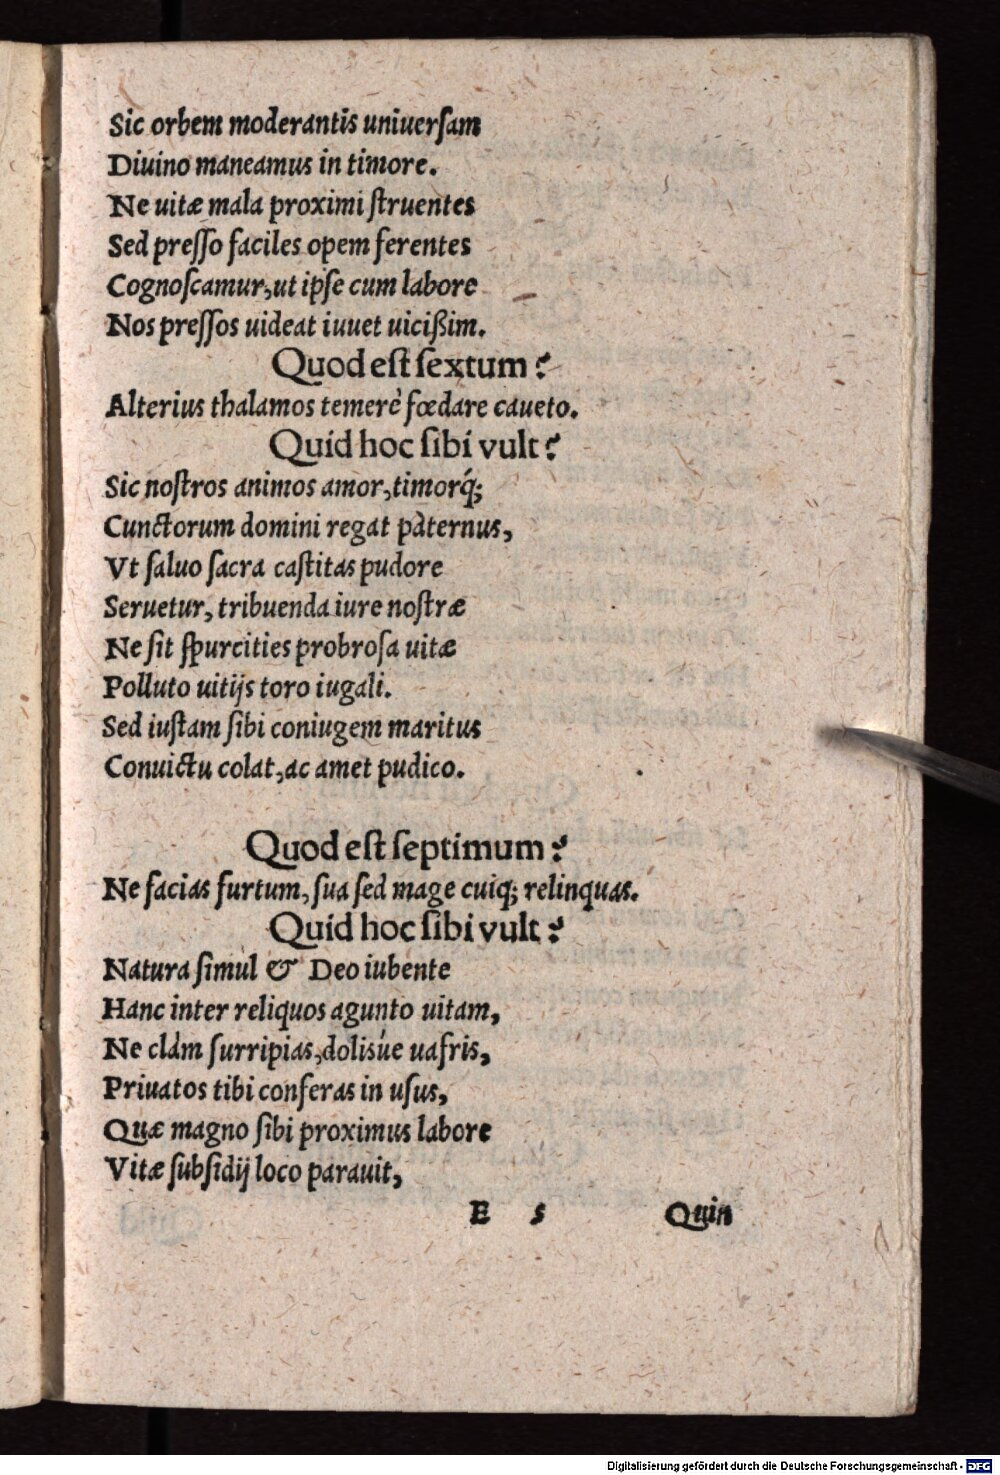 Sic orbem moderantis uniuerſam
Diuino maneamus in timore.
Ne uitæ mala proximi ſtruentes
Sed preſſo faciles opem ferentes
Cognoſcamur, ut ipſe cum labore
Nos preſſos uideat iuuet uicißim.
Quod eſt ſextum?
Alterius thalamos temerè fœdare caueto.
Quid hoc ſibi vult?
Sic noſtros animos amor, timorq́;
Cunctorum domini regat pàternus,
Vt ſaluo ſacra caſtitas pudore
Seruetur, tribuenda iure noſtræ
Ne ſit ſpurcities probroſa uitæ
Polluto uitijs toro iugali.
Sed iuſtam ſibi coniugem maritus
Conuictu colat, ac amet pudico.
Quod eſt ſeptimum?
Ne facias furtum, ſua ſed mage cuiq; relinquas.
Quid hoc ſibi vult?
Natura ſimul & Deo iubente
Hanc inter reliquos agunto uitam,
Ne clàm ſurripias, dolisúe uafris,
Priuatos tibi conferas in uſus,
Quæ magno ſibi proximus labore
Vitæ ſubſidij loco parauit,
E 5 Quin
Digitalisierung gefördert durch die Deutsche Forschungsgemeinschaft - DFG